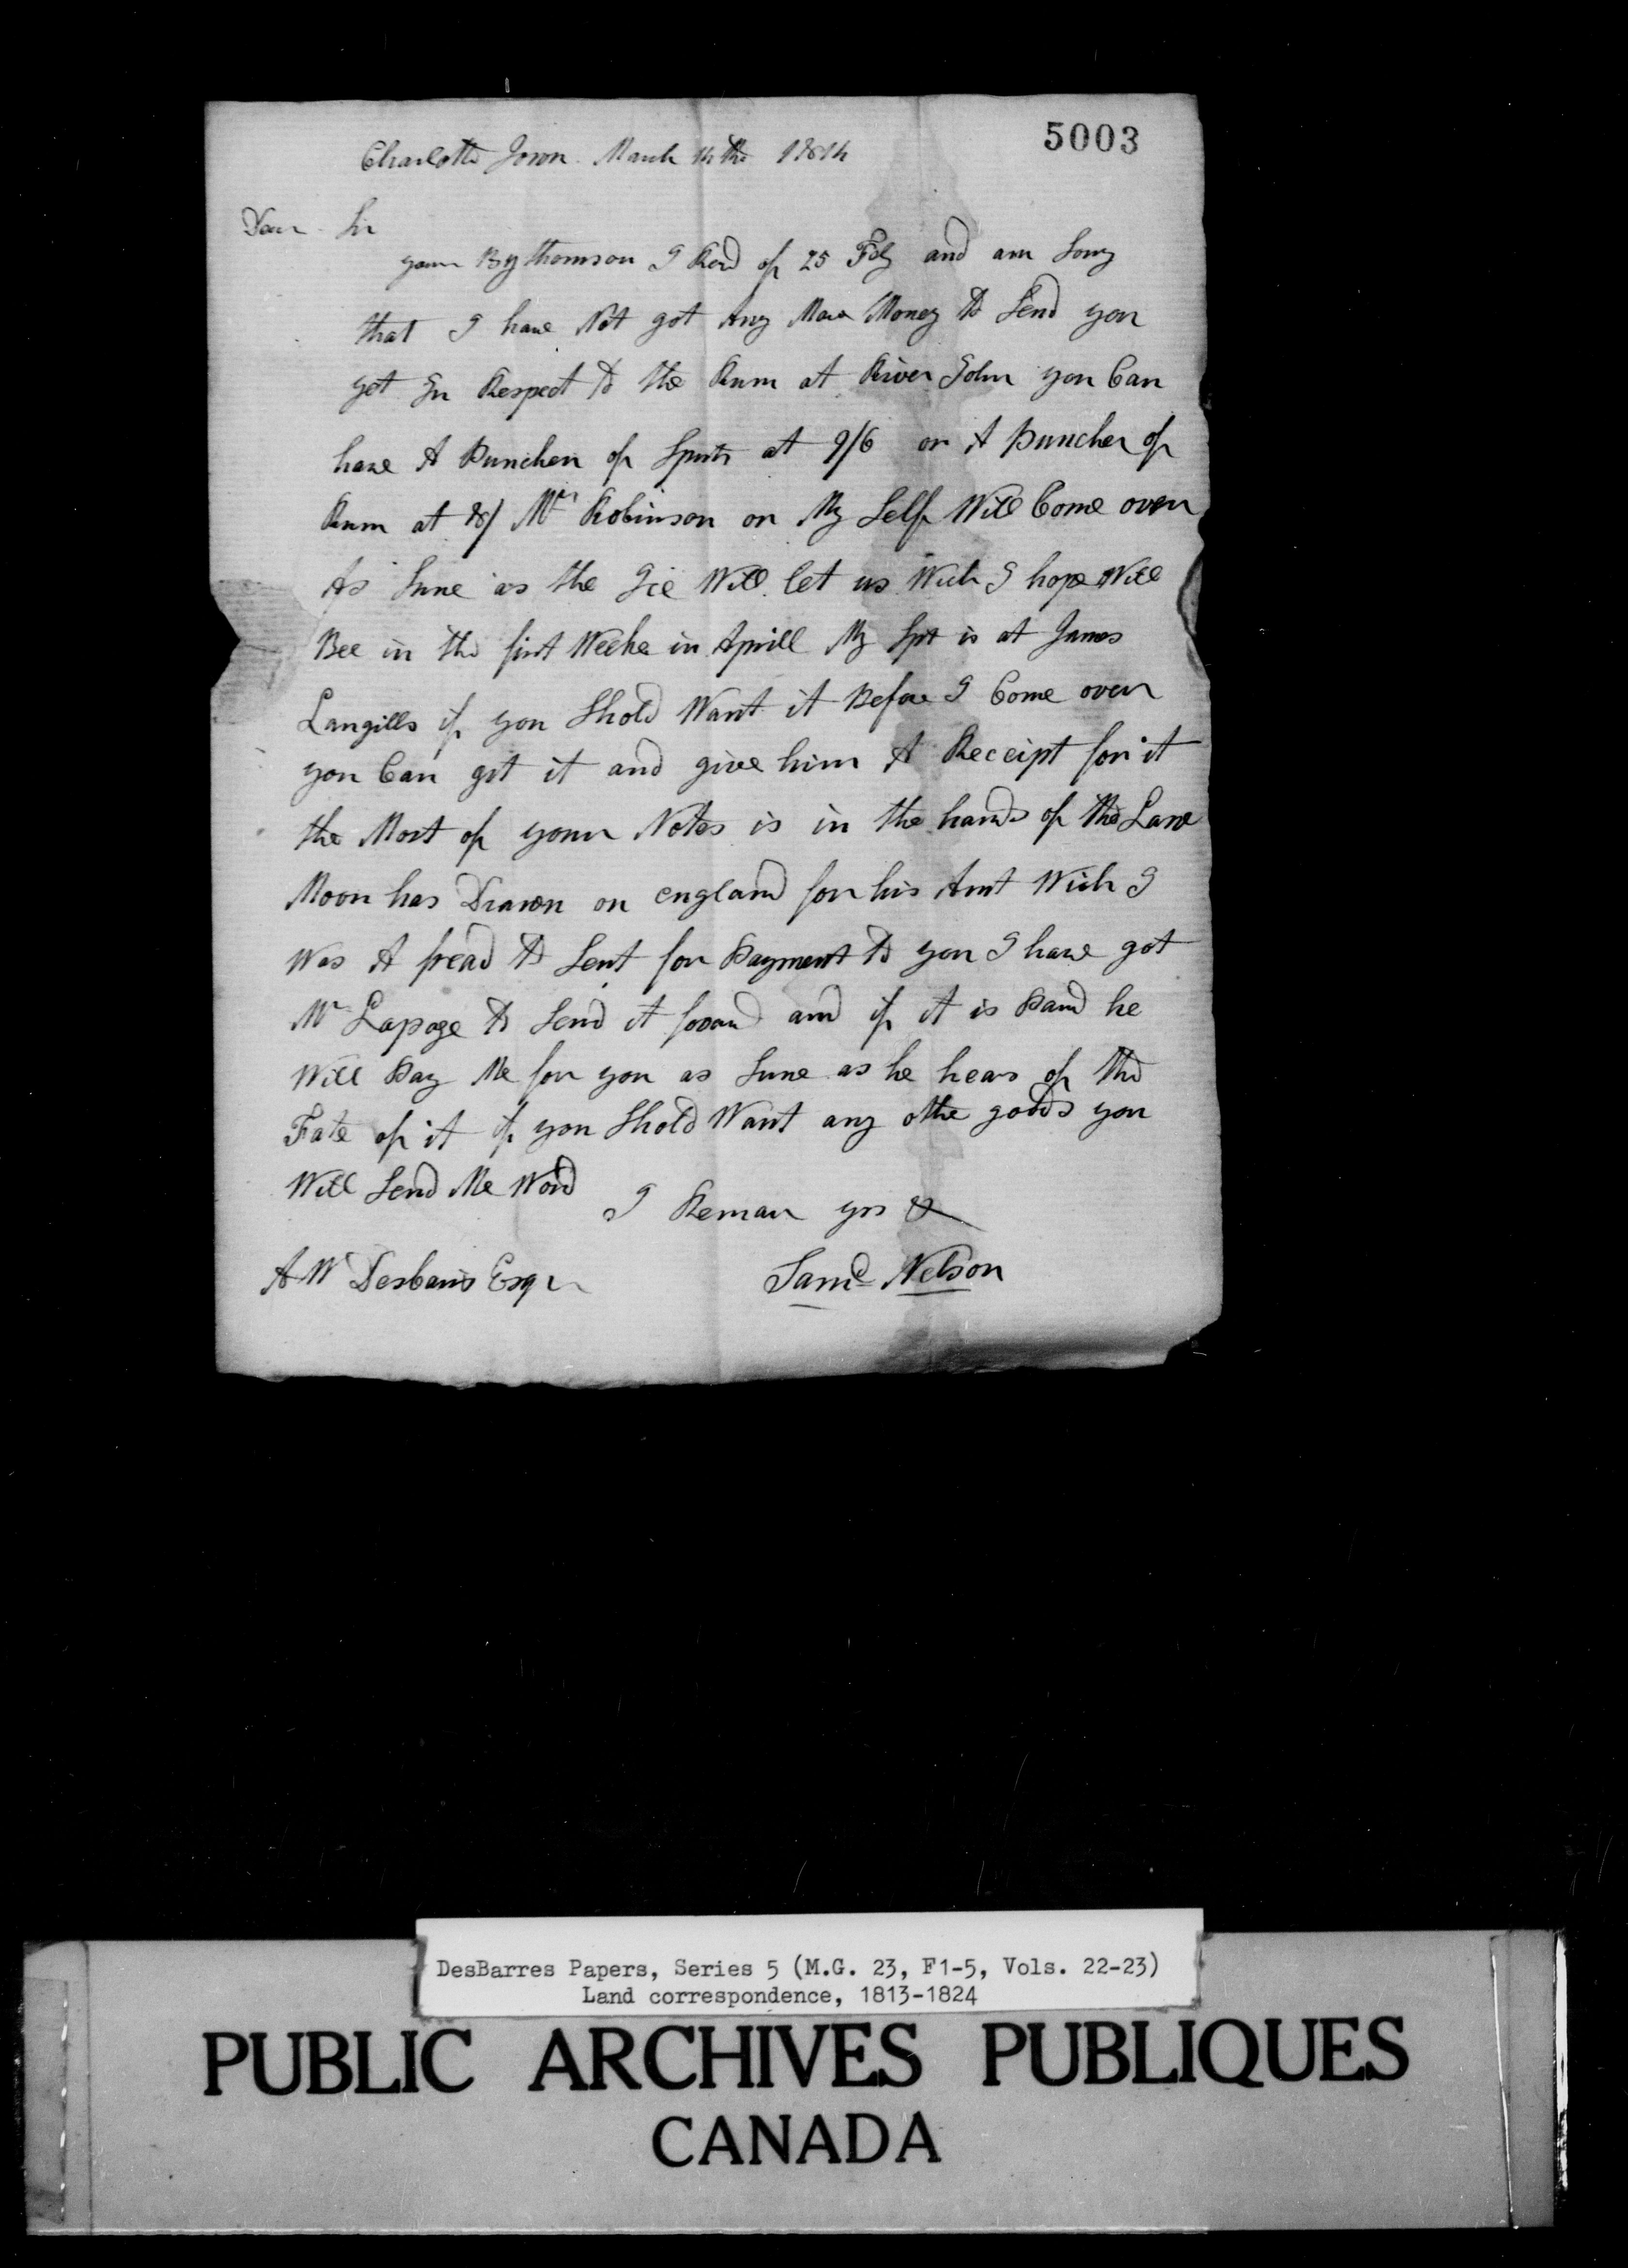 5003
Charlotte Town March 14th 1814
Dear Sir
your By thomson I Recd of 25 Feby and am Sorry
that I have Not got Any More Money to Send you
yet In Respect to the Rum at River John you Can
have A Punchen of Sprits at 9/6 or A Punchen of
Rum at 8/ Mr Robinson or My Self Will Come over
As Sune as the Ice Will let us Wich I hope Will
Bee in the first Weeke in Aprill My Sprt is at James
Langills if you Shold Want it Before I Come over
you Can git it and give him A Receipt for it
the Most of your Notes is in the hands of the Law
Moor has Drawn on england for his Amt Wich I
Was A fread to Sent for Payment to you I have got
Mr Lapage to Send it forard and if it is Paid he
Will Pay Me for you as Sune as he hears of the
Fate of it if you Shold Want any othe goods you
Will Send Me Word
I Reman yrs &
A W Desbaris Esqr
Saml Nelson
DesBarres Papers, Series 5 (M.G. 23, F1-5, Vols. 22-23)
Land correspondence, 1813-1824
PUBLIC ARCHIVES PUBLIQUES
CANADA